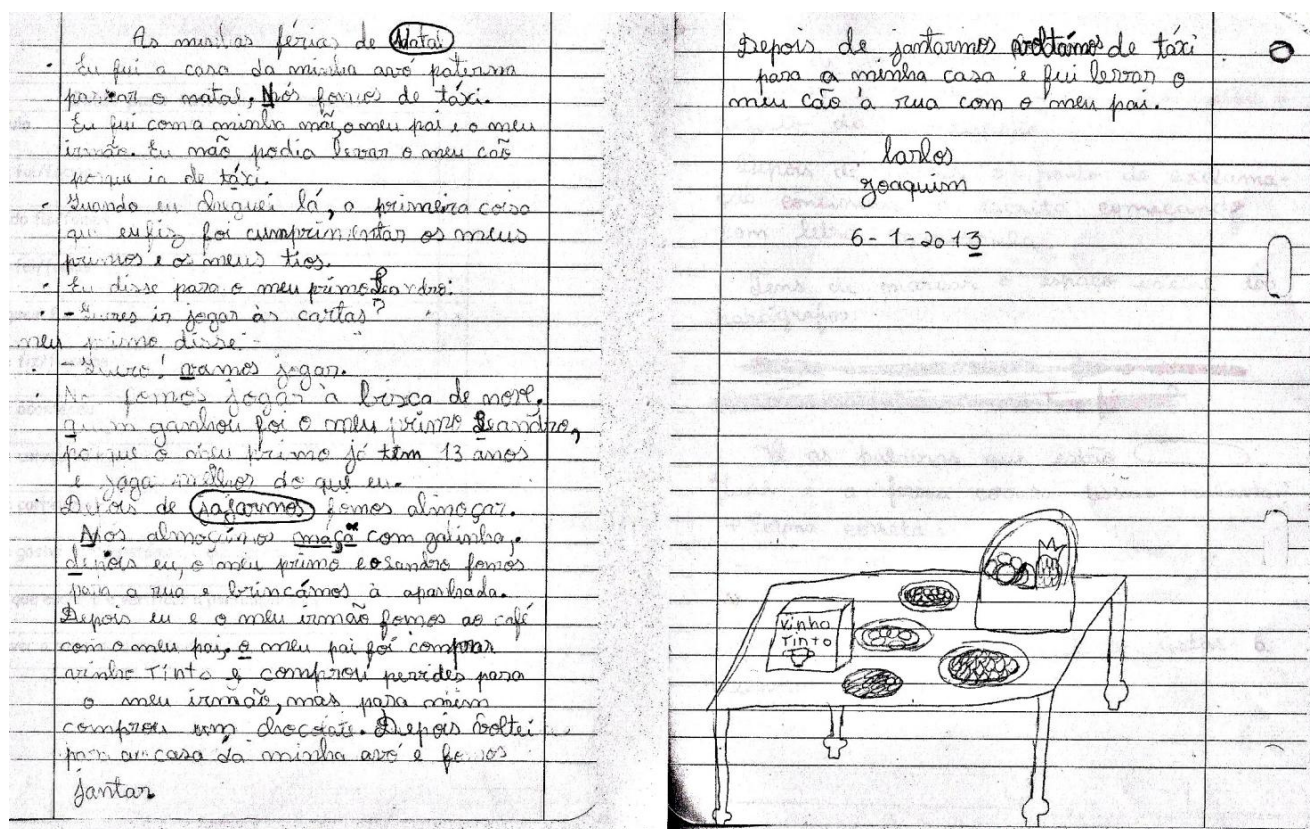 As minhas férias de Natal
Eu fui a casa da minha avó paterna
passar o natal, Nós fomos de táxi.
Eu fui com a minha mãi, o meu pai e o meu
irmão. Eu não podia levar o meu cão
porque ia de táxi.
Quando eu cheguei lá, a primeira coisa
que eu fiz foi cumprimentar os meus
primos e os meus tios.
Eu disse para o meu primo Leandro:
- Queres ir jogar às cartas?
meu primo disse:
- Quero! vamos jogar.
No fomos jogar à bisca de nove.
quem ganhou foi o meu primo Leandro,
porque o meu primo já tem 13 anos
e joga melhor do que eu.
Depois de fomos almoçar.
Nós almoçámos maçã com galinha,
depois eu, o meu primo e o Sandro fomos
para a rua e brincámos à apanhada.
Depois eu e o meu irmão fomos ao café
com o meu pai, o meu pai foi comprar
vinho Tinto e comprou pevides para
o meu irmão, mas para mim
comprou um chocolate. Depois voltei
para a casa da minha avó e fomos
jantar
Depois de jantarmos voltámos de táxi
para a minha casa e fui levar o
meu cão à rua com o meu pai.
Carlos
Joaquim
6-1-2013
Vinho
Tinto